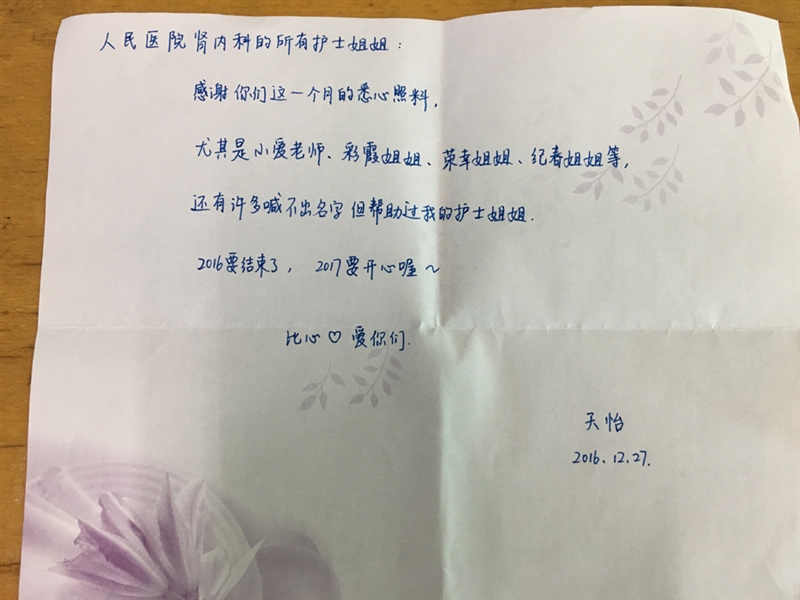 人民医院肾内科的所有护士姐姐：
感谢你们这一个月的悉心照料,
尤其是小爱老师、彩霞姐姐、荣幸姐姐、纪春姐姐等,
还有许多喊不出名字但帮助过我的护士姐姐.
2016要结束了， 2017要开心喔～
比心♡爱你们.
天怡
2016.12.27.